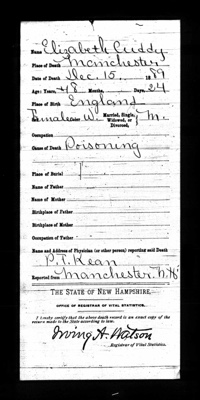 Name Elizabeth Cuddy
Place of Death Manchester
Date of Death Dec. 15, 1889
Age: Years, 48 Months, Days, 24
Place of Birth England
Female Color W. Married, Single, Widowed, or Divorced, } M.
Occupation
Cause of Death Poisoning
Place of Burial
Name of Father
Maiden Name of Mother
Birthplace of Father
Birthplace of Mother
Occupation of Father
Name and Address of Physician (or other person) reporting said Death
P. T. Kean
Reported from Manchester, N.H.
THE STATE OF NEW HAMPSHIRE.
OFFICE OF REGISTRAR OF VITAL STATISTICS.
I hereby certify that the above death record is an exact copy of the
return made to the State according to law.
Irving A. Watson
Registrar of Vital Statistics.